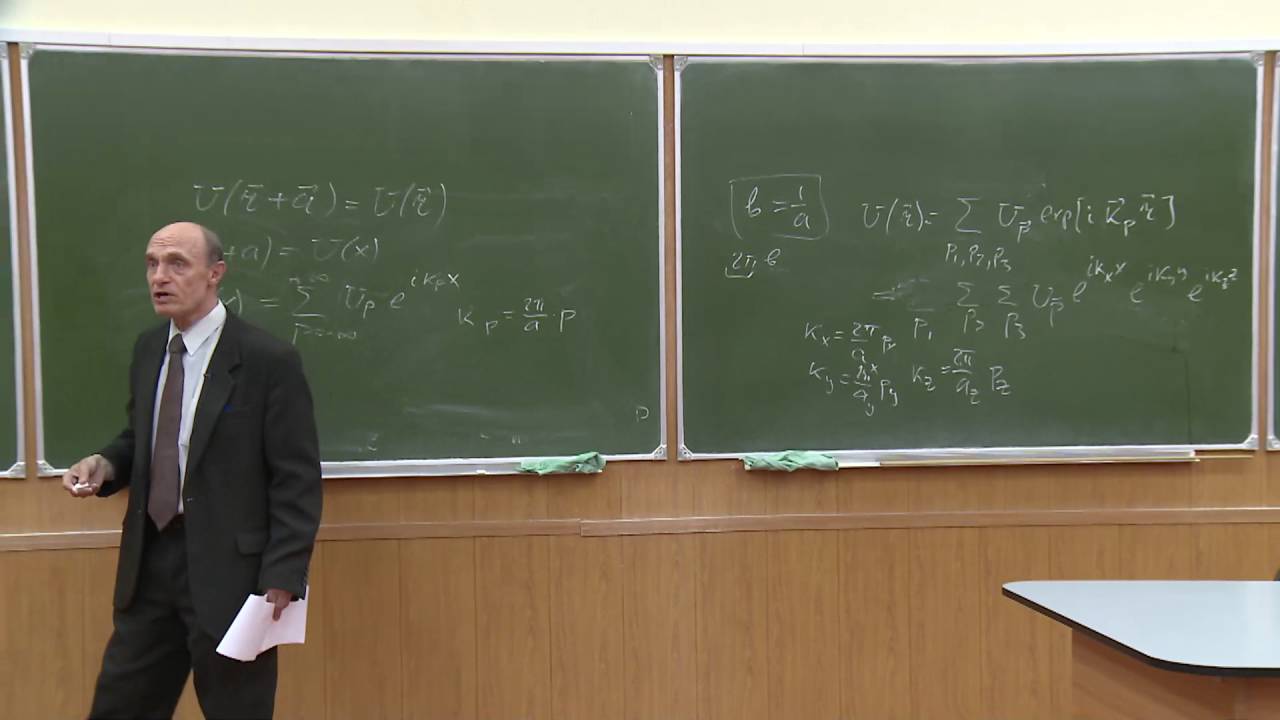 U(r⃗ + a⃗) = U(r⃗)
+a) = U(x)
) = ∑ U_p e^{iK_p x}
p=-∞
K_p = 2π/a · p
b = 1/a
2π b
U(r⃗) = ∑ U_p⃗ exp[i K⃗_p r⃗]
p₁, p₂, p₃
∑ ∑ U_p⃗ e^{iK_x x} e^{iK_y y} e^{iK_z z}
p₁ p₂ p₃
K_x = 2π/a_x p_x
K_y = 2π/a_y p_y K_z = 2π/a_z p_z